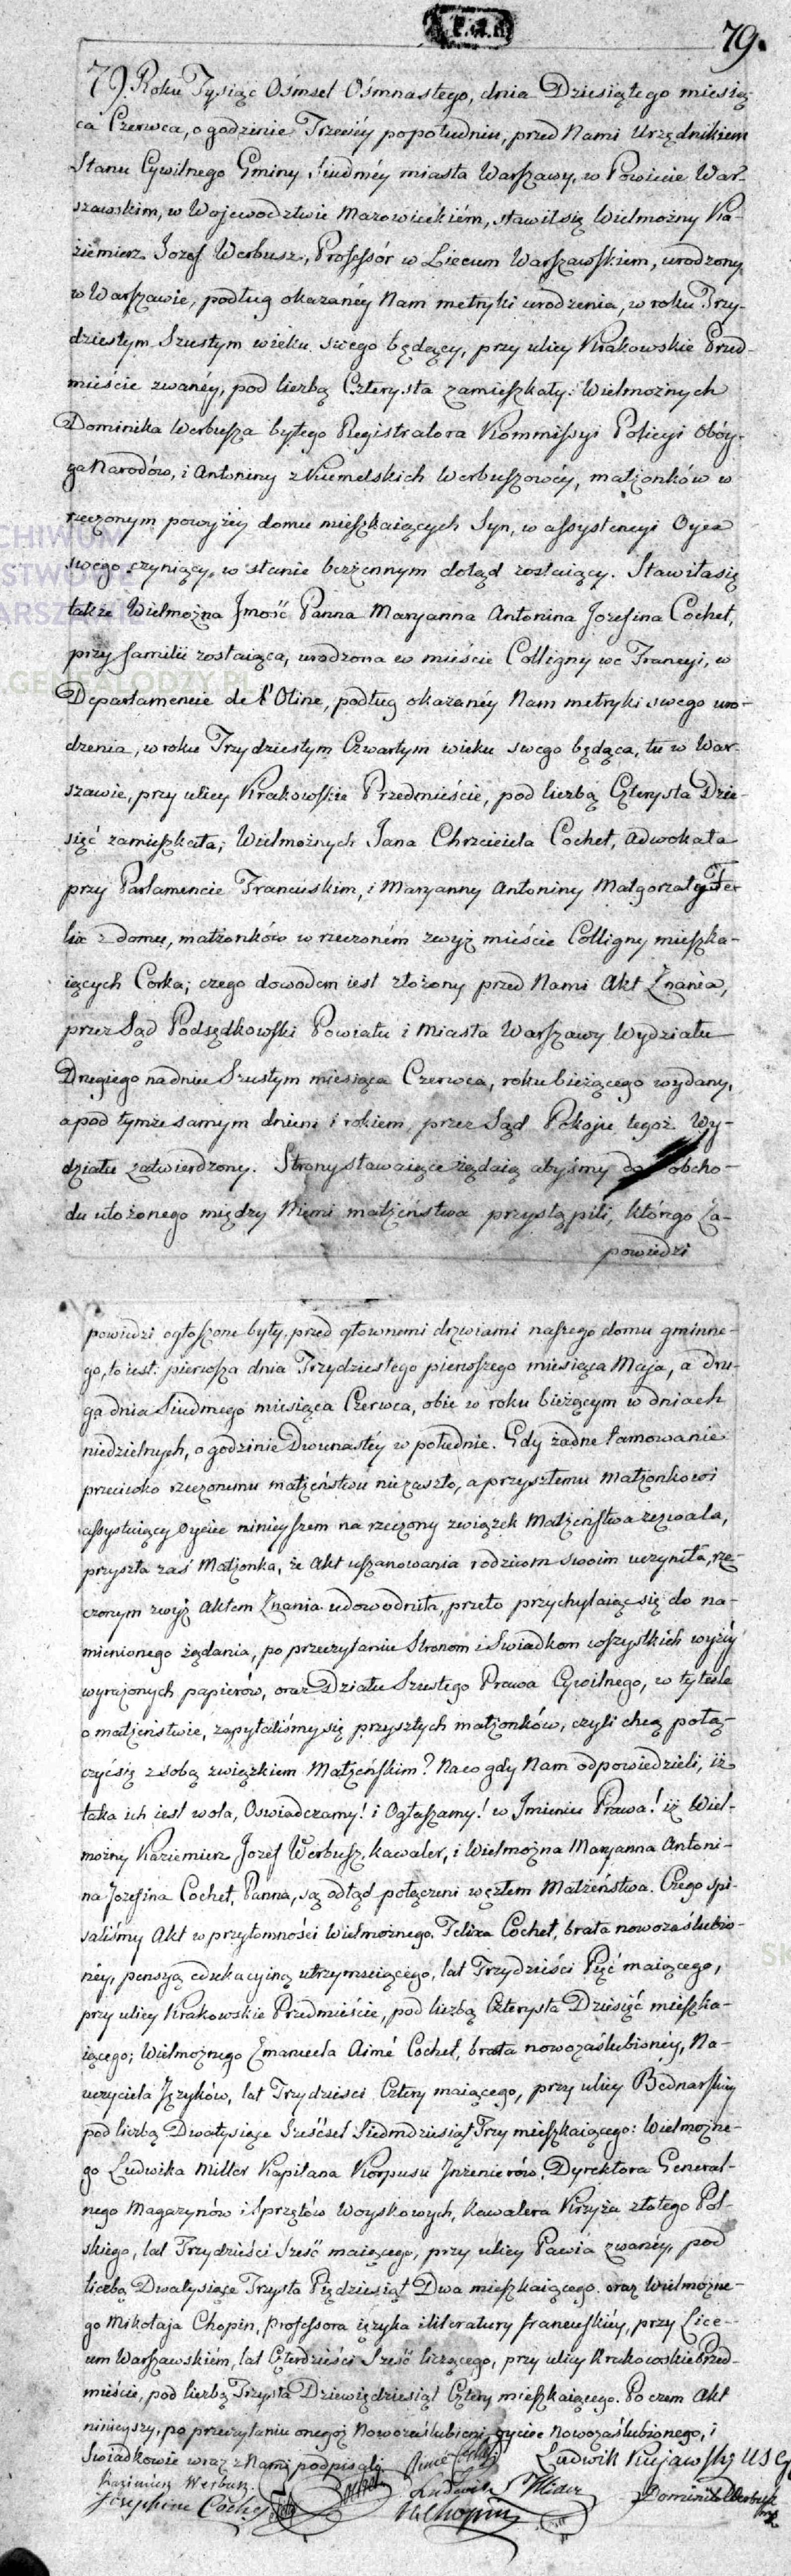 79.
79. Roku Tysiąc Ośmset Ośmnastego, dnia Dziesiątego miesią
ca Czerwca, o godzinie Trzeciéy popołudniu, przed Nami Urzędnikiem
Stanu Cywilnego Gminy Siudméy miasta Warszawy, w Powiecie War-
szawskim, w Województwie Mazowieckiém, stawił się Wielmożny Ka-
źiemierz Jozef Werbusz, Professór w Liceum Warszawskiem, urodzony
w Warszawie, podług okazanéy Nam metryki urodzenia, w roku Trzy-
dziestym Szustym wieku swego będący, przy ulicy Krakowskie Przed-
mieście zwanéy, pod liczbą Czterysta zamieszkały: Wielmożnych
Dominika Werbusza byłego Registratora Kommissyi Policyi Obóy-
ga Narodów, i Antoniny z Kumelskich Werbuszowéy, małżonków w
rzeczonym powyżéy domu mieszkaiących Syn, w assystencyi Oyca
swego czyniący, w stanie bezżennym dotąd zostaiący. Stawiła się
także Wielmożna Jmość Panna Maryanna Antonina Jozefina Cochet,
przy familii zostaiąca, urodzona w mieście Colligny we Francyi, w
Departamencie de l'Oline, podług okazanéy Nam metryki swego uro-
dzenia, w roku Trzydziestym Czwartym wieku swego będąca, tu w War-
szawie, przy ulicy Krakowskie Przedmieście, pod liczbą Czterysta Dzie-
sięć zamieszkała; Wielmożnych Jana Chrzciciela Cochet, Adwokata
przy Parlamencie Francuskim, i Maryanny Antoniny Małgorzaty Fe-
lix z domu, małżonków w rzeczoném zwyż mieście Colligny mieszka-
iących Corka; czego dowodem iest złożony przed Nami Akt Znania,
przez Sąd Podsędkowski Powiatu i Miasta Warszawy Wydziału
Drugiego na dniu Szustym miesiąca Czerwca, roku bieżącego wydany,
a pod tymże samym dniem i rokiem, przez Sąd Pokoju tegoż Wy-
działu zatwierdzony. Strony stawaiące żądaią abyśmy do obcho-
du ułożonego między Niemi małżeństwa przystąpili, którego Za-
powiedzi
powiedzi ogłoszone były przed głownemi drzwiami naszego domu gminne-
go, to iest: pierwsza dnia Trzydziestego pierwszego miesiąca Maja, a dru-
ga dnia Siudmego miesiąca Czerwca, obie w roku bieżącym w dniach
niedzielnych, o godzinie Dwunastéy w południe. Gdy żadne tamowanie
przeciwko rzeczonemu małżeństwu nie zaszło, a przyszłemu Małżonkowi
assystuiący Oyciec ninieyszem na rzeczony związek Małżeństwa zezwala,
przyszła zaś Małżonka, że Akt uszanowania rodzicom swoim uczyniła, rze-
czonym zwyż Aktem Znania udowodniła, przeto przychylaiąc się do na-
mienionego żądania, po przeczytaniu Stronom i Swiadkom wszystkich wyżéy
wyrażonych papierów, oraz Działu Szustego Prawa Cywilnego, w tytule
o małżeństwie, zapytaliśmy się przyszłych małżonków, czyli chcą połą-
czyć się z sobą związkiem Małżeńskim? Na co gdy Nam odpowiedzieli, iż
taka ich iest wola, Oswiadczamy! i Ogłaszamy! w Jmieniu Prawa! iż Wiel-
możny Kazimierz Jozef Werbusz, kawaler, i Wielmożna Maryanna Antoni-
na Jozefina Cochet, Panna, są odtąd połączeni węzłem Małżeństwa. Czego spi-
saliśmy Akt w przytomności Wielmożnego Felixa Cochet, brata nowozaślubio-
néy, pensyą edukacyiną utrzymuiącego, lat Trzydzieści Pięć maiącego,
przy ulicy Krakowskie Przedmieście, pod liczbą Czterysta Dziesięć mieszka-
iącego; Wielmożnego Emanuela Aimé Cochet, brata nowozaślubionéy, Na-
uczyciela Języków, lat Trzydzieści Cztery maiącego, przy ulicy Bednarskiéy
pod liczbą Dwatysiące Sześćset Siedmdziesiąt Trzy mieszkaiącego: Wielmożne-
go Ludwika Miller Kapitana Korpusu Jnżenierów, Dyrektora General-
nego Magazynów i Sprzętów Woyskowych, Kawalera Krzyża złotego Pol-
skiego, lat Trzydzieści Sześć maiącego, przy ulicy Pawia zwanéy, pod
liczbą Dwatysiące Trzysta Pięćdziesiąt Dwa mieszkaiącego. oraz Wielmożne-
go Mikołaja Chopin, Professora ięzyka i literatury francuskiéy, przy Lice-
um Warszawskiém, lat Czterdzieści Sześć liczącego, przy ulicy Krakowskie Przed-
mieście, pod liczbą Trzysta Dziewięćdziesiąt Cztery mieszkaiącego. Po czem Akt
ninieyszy, po przeczytaniu onegoż Nowozaślubieni, Oyciec Nowozaślubionego, i
Swiadkowie wraz z Nami podpisali.
Ludwik Kujawski USC
Kazimierz Werbusz.
Josephine Cochet
Cochet
Aimé Cochet
Ludwik Miller
N Chopin
Dominik Werbusz